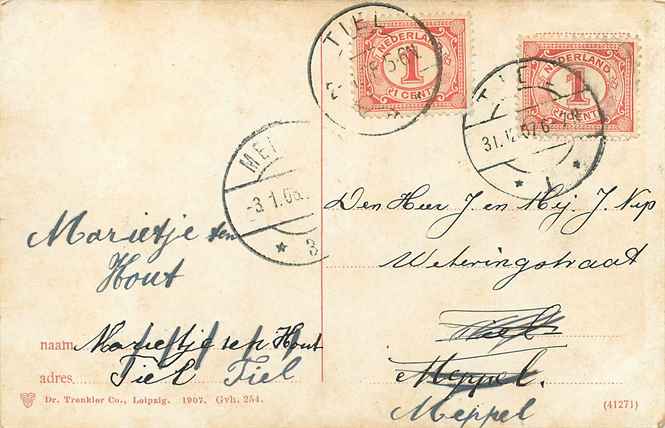 TIEL
5-6N
NEDERLAND
1
1 CENT
TIEL
31.12.07 6-
1
NEDERLAND
1
CENT
MEP
-3.1.08.
3
Den Heer J. en Mej. J. Nip
Weteringstraat
Tiel
Meppel.
Meppel
Marietje ten
Hout
naam Marietje ten Hout
adres Tiel Tiel
Dr. Trenkler Co., Leipzig. 1907. Gvh. 254.
(41271)